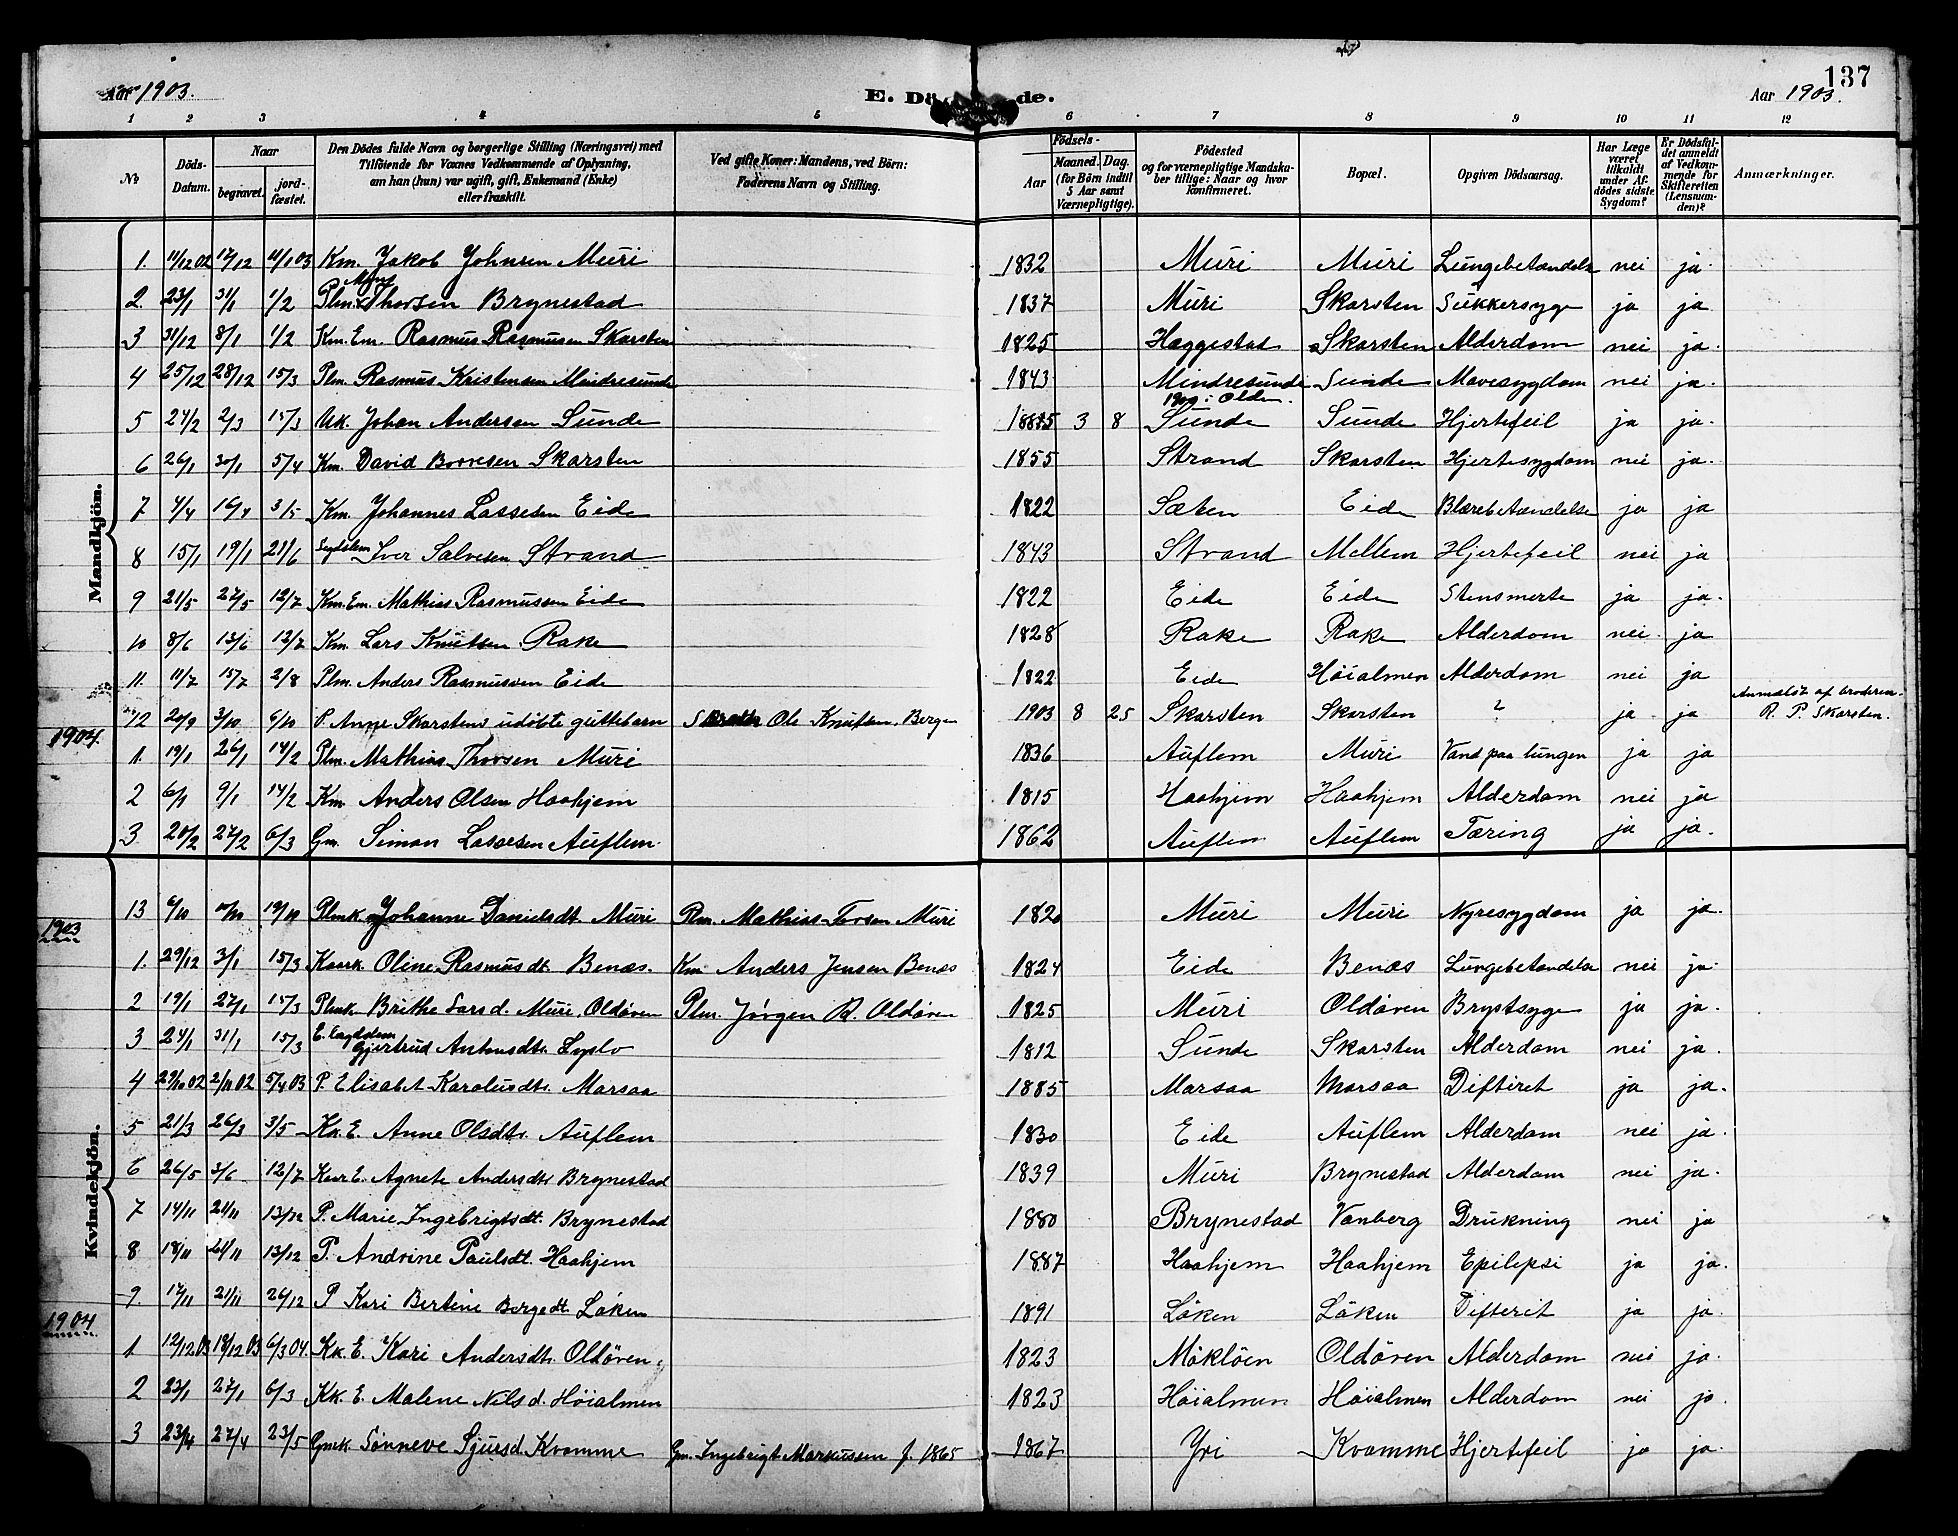 137
Aar 1903.
E. Dö de.
Aar 1903.
1 2 3 4 5 6 7 8 9 10 11 12
No
Döds-Datum.
Naar
begravet.
jord-fæstet.
Den Dödes fulde Navn og borgerlige Stilling (Næringsvei) med
Tilföiende for Voxnes Vedkommende af Oplysning,
om han (hun) var ugift, gift, Enkemand (Enke)
eller fraskilt.
Ved gifte Koner: Mandens, ved Börn:
Faderens Navn og Stilling.
Födsels-
Aar
Maaned. Dag.
(for Börn indtil
5 Aar samt
Værnepligtige).
Födested
og for værnepligtige Mandska-
ber tillige: Naar og hvor
konfirmeret.
Bopæl.
Opgiven Dödsaarsag.
Har Læge
været
tilkaldt
under Af-
dödes sidste
Sygdom?
Er Dödsfal-
det anmeldt
af Vedkom-
mende for
Skifteretten
(Lensman-
den)?
Anmærkninger.
Mandkjön.
1. 11/12 02 17/12 11/1 03 Km. Jakob Johnsen Muri 1832 Muri Muri Lungebetændelse nei ja.
2. 23/1 31/1 1/2 Plm. Mons Thorsen Brynestad 1837 Muri Skarsten Sukkersyge ja ja
3 31/12 8/1 1/2 Km. Em. Rasmus Rasmusen Skarsten 1825 Haggestad Skarsten Alderdom nei ja.
4 25/12 28/12 15/3 Plm. Rasmus Kristensen Mindresunde 1843 Mindresunde Sunde Mavesygdom nei ja.
5 24/2 2/3 15/3 Uk. Johan Andersen Sunde 1885 3 8 1900 i Olden. Sunde Sunde Hjertefeil ja ja.
6 26/1 30/1 5/4 Km. David Bovesen Skarsten 1855 Strand Skarsten Hjertesygdom nei ja.
7 4/4 16/4 3/5 Km. Johannes Lassesen Eide 1822 Sæten Eide Blærebetændelse ja ja
8 15/1 19/1 21/6 Iver Salvesen Strand 1843 Strand Mellem Hjertefeil nei ja
9 21/5 27/5 12/7 Km. Em. Mathias Rasmussen Eide 1822 Eide Eide Stensmerte ja ja.
10 8/6 13/6 12/7 Km. Lars Knutsen Rake 1828 Rake Rake Alderdom nei ja
11. 11/7 15/7 2/8 Plm. Anders Rasmussen Eide 1822 Eide Höialmen Alderdom nei ja
12 20/9 3/10 6/10 P. Anne Skarstens udöbte guttebarn Ole Knutsen, Bergen 1903 8 25 Skarsten Skarsten ? ja ja Anmeldt af broderen R. P. Skarsten.
1904.
1. 19/1 26/1 14/2 Plm. Mathias Thorsen Muri 1836 Auflem Muri Vand paa lungen ja ja
2 6/1 9/1 14/2 Km Anders Olsen Haahjem 1815 Haahjem Haahjem Alderdom nei ja
3. 20/2 27/2 6/3 Gm. Simon Lassesen Auflem. 1862 Auflem Auflem Tæring ja ja.
1903
Kvindekjön.
13 6/10 10/10 19/10 Plmk Johanne Danielsdt. Muri Plm. Mathias Torsen Muri 1820 Muri Muri Nyresygdom ja ja.
1. 29/12 3/1 15/3 Oline Rasmusdt. Benæs. Km. Anders Jensen Benæs 1824 Eide Benæs Lungebetændelse nei ja.
2 19/1 27/1 15/3 Plmk. Brithe Larsd. Muri, Oldören Plm. Jörgen R. Oldören 1825 Muri Oldören Brystsyge ja ja.
3 24/1 31/1 15/3 E. Gjertrud Antonsdtr. Lyslo 1812 Sunde Skarsten Alderdom nei ja.
4 29/10 02 2/11 02 5/4 03 P. Elisabet Karolusdtr. Marsaa 1885 Marsaa Marsaa Difterit ja ja.
5 21/3 26/3 3/5 Kk. E. Anne Olsdtr. Auflem 1830 Eide Auflem Alderdom nei ja.
6 26/5 3/6 12/7 E. Agnete Andersdtr. Brynestad 1839 Muri Brynestad Alderdom nei ja.
7 14/11 21/11 13/12 P. Marie Ingebrigtsdt. Brynestad 1880 Brynestad Vanberg Drukning nei ja
8 18/11 24/11 13/12 P. Andrine Paulsdt. Haahjem 1887 Haahjem Haahjem Epilepsi ja ja.
9. 17/11 21/11 26/12 P Kari Bertine Borgedt. Löken 1891 Löken Löken Difterit ja ja.
1904
1 12/12 03 18/12 03 6/3 04. Kk. E. Kari Andersdtr. Oldören 1823 Möklöen Oldören Alderdom nei ja.
2 23/1 27/1 6/3 Kk. E. Malene Nilsd. Höialmen 1823 Höialmen Höialmen Alderdom nei ja.
3 23/4 27/4 23/5 Gmk. Sönneve Sjursd. Kvamme Gm. Ingebrigt Markussen f. 1865 1867 Yri Kvamme Hjertefeil ja ja.